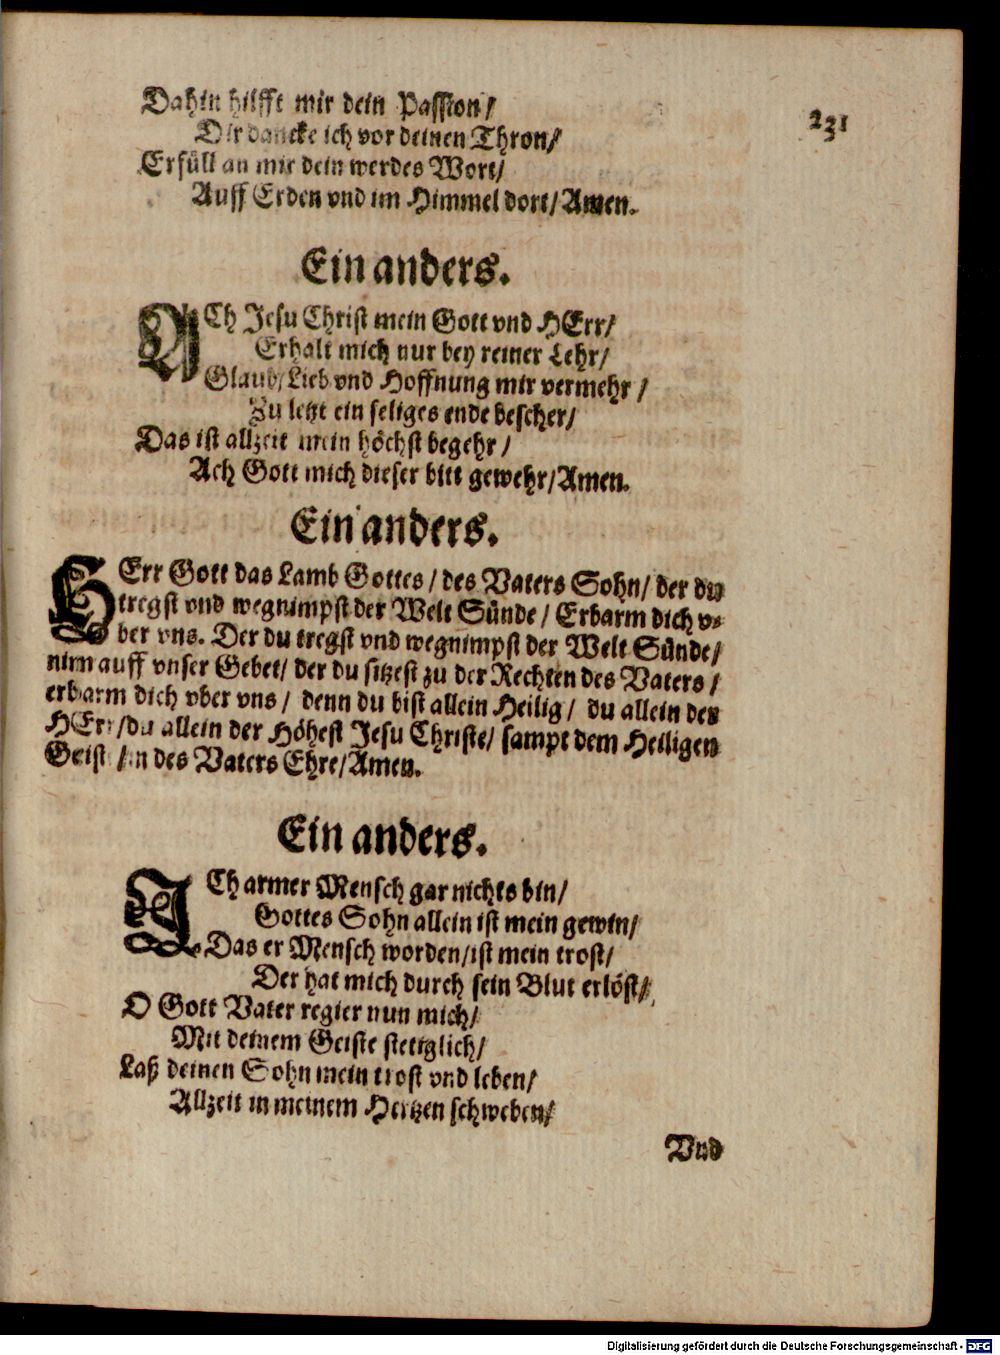 231
Dahin hilfft mir dein Passion/
Dir dancke ich vor deinen Thron/
Erfüll an mir dein werdes Wort/
Auff Erden vnd im Himmel dort/ Amen.
Ein anders.
ACh Jesu Christ mein Gott vnd HErr/
Erhalt mich nur bey reiner Lehr/
Glaub/ Lieb vnd Hoffnung mir vermehr/
Zu letzt ein seliges ende bescher/
Das ist allzeit mein höchst begehr/
Ach Gott mich dieser bitt gewehr/ Amen.
Ein anders.
HErr Gott das Lamb Gottes/ des Vaters Sohn/ der du
tregst vnd wegnimpst der Welt Sünde/ Erbarm dich v-
ber vns. Der du tregst vnd wegnimpst der Welt Sünde/
nim auff vnser Gebet/ der du sitzest zu der Rechten des Vaters/
erbarm dich vber vns/ denn du bist allein Heilig/ du allein der
HErr/ du allein der Höhest Jesu Christe/ sampt dem Heiligen
Geist/ in des Vaters Ehre/ Amen.
Ein anders.
ICh armer Mensch gar nichts bin/
Gottes Sohn allein ist mein gewin/
Das er Mensch worden/ ist mein trost/
Der hat mich durch sein Blut erlöst/
O Gott Vater regier nun mich/
Mit deinem Geiste stetiglich/
Laß deinen Sohn mein trost vnd leben/
Allzeit in meinem Hertzen schweben/
Vnd
Digitalisierung gefördert durch die Deutsche Forschungsgemeinschaft - DFG